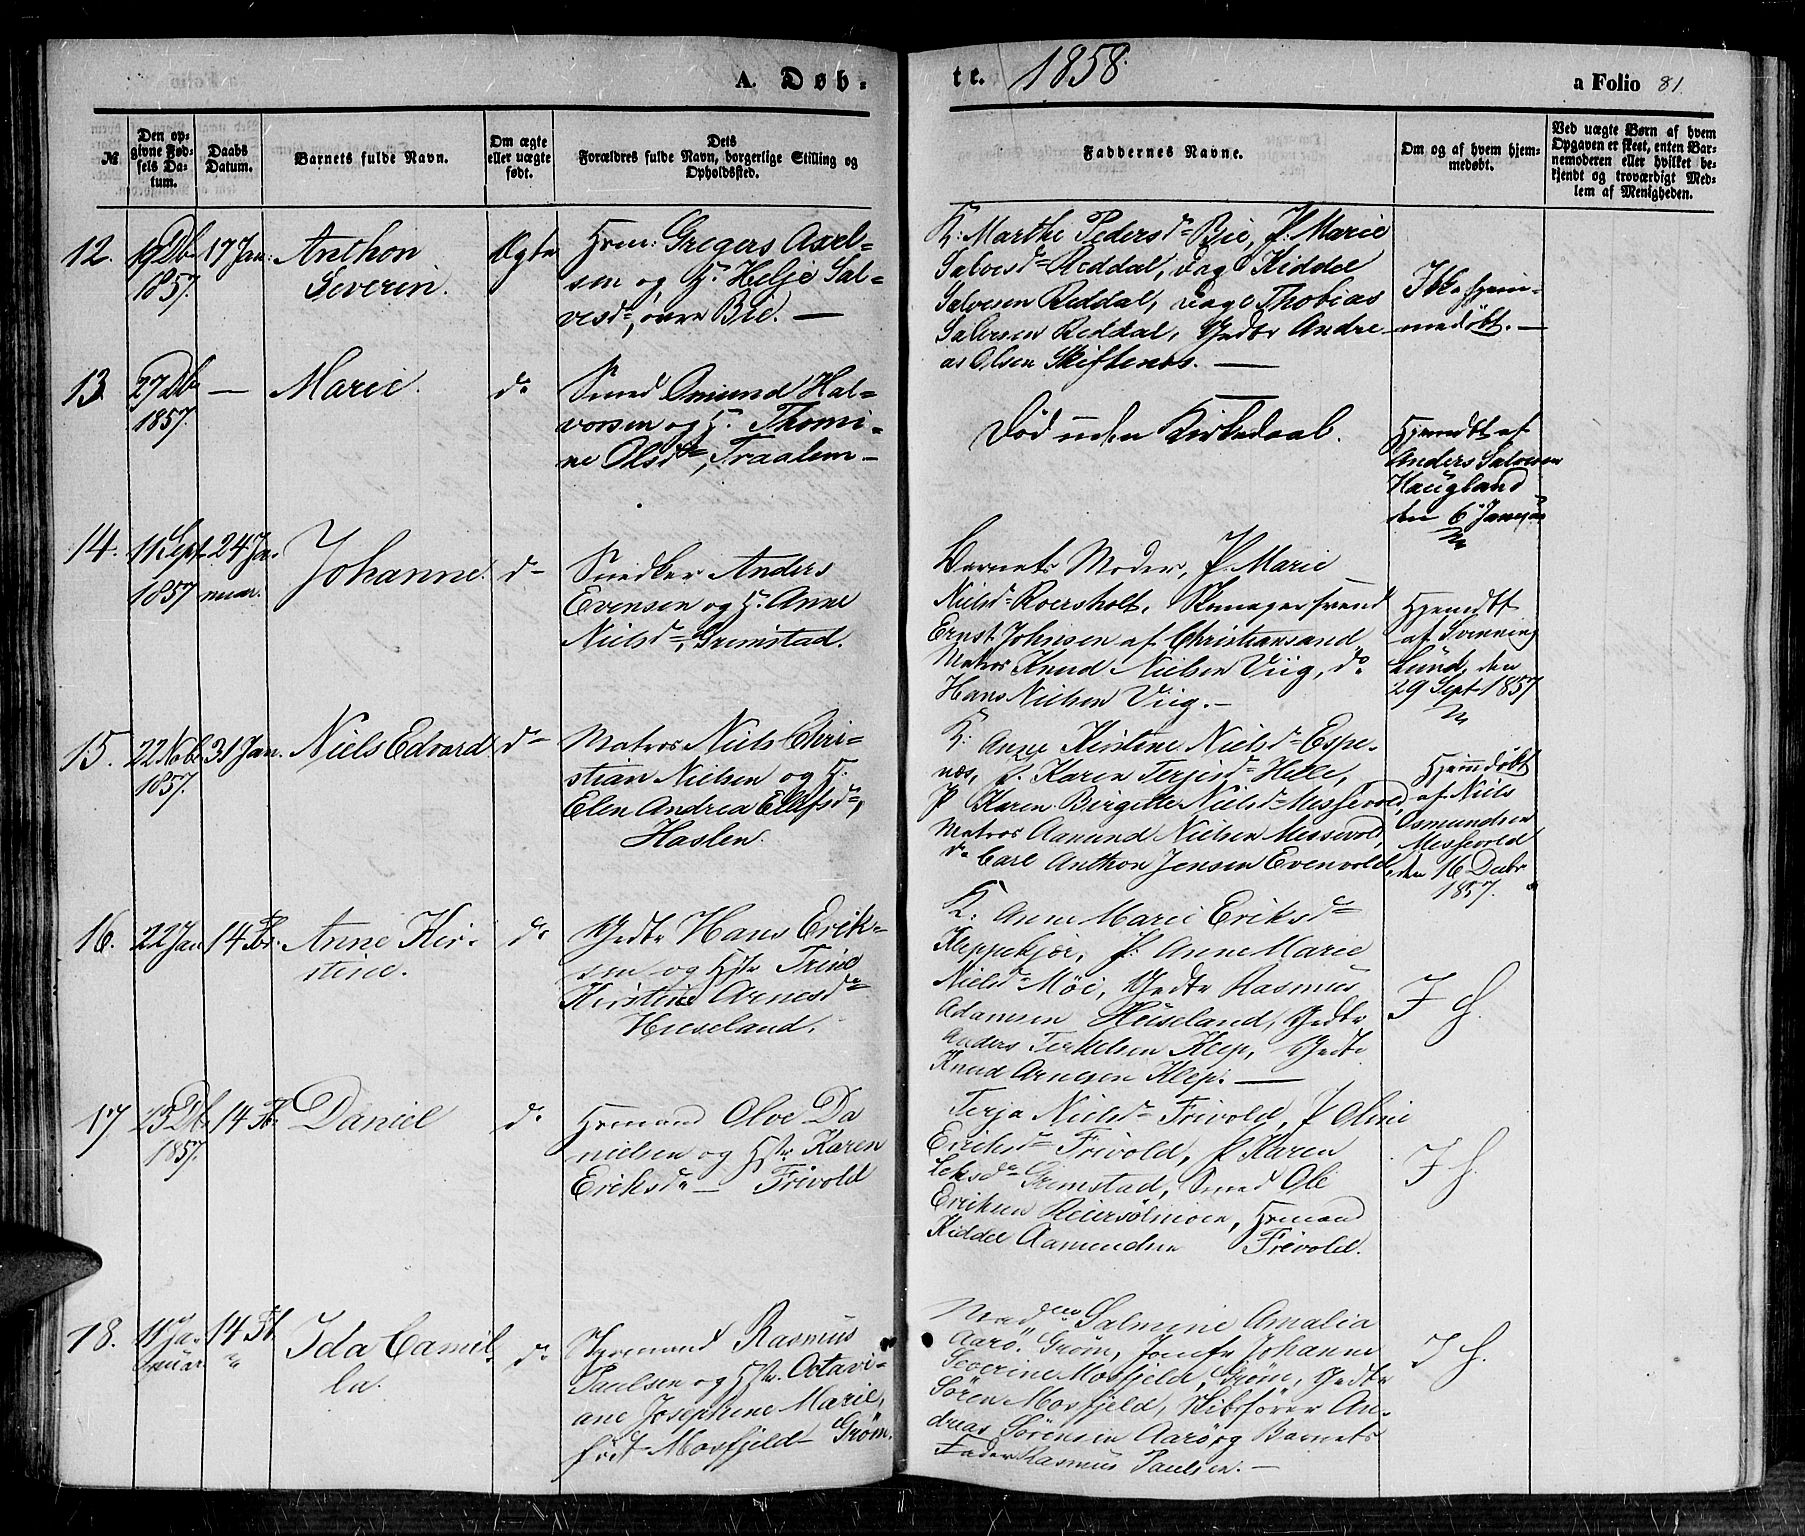 A. Døb-
te. 1858.
a Folio 81.
№
Den op-
givne Fød-
sels Da-
tum.
Daabs
Datum.
Barnets fulde Navn.
Om ægte
eller uægte
født.
Dets
Forældres fulde Navn, borgerlige Stilling og
Opholdssted.
Faddernes Navne.
Om og af hvem hjem-
medøbt.
Ved uægte Børn af hvem
Opgaven er skeet, enten Bar-
nemoderen eller hvilket be-
kjendt og troværdigt Med-
lem af Menigheden.
12.
19 Db
1857.
17 Jan:
Anthon
Severin.
Ægte
Hrm: Gregers Axel-
sen og H. Helje Sal-
vesd, øvre Bie. —
K: Marthe Pedersd Bie, P. Marie
Salvesd Reddal, Kiddel
Salvesen Reddal, Thobias
Salvesen Reddal, Gdbr Andre
as Olsen Skiftenes. —
Ikke hjem-
medøbt. —
13.
27 Db
1857.
—
Marie.
do
Smed Omund Hal-
vorsen og H. Thomi-
ne Olsd, Traalem —
Død uden Kirkedaab.
Hjemdbt af
Anders Salvesen
Haugland
den 6 Januar
14.
11 Sept
1857
24 Ja-
nuar.
Johanne.
do
Snedker Anders
Evensen og H. Anne
Nielsd, Grimstad.
Barnets Moder, P. Marie
Nielsd Roersholt, Skomagersvend
Ernst Johnsen af Christiansand,
Matros Knud Nielsen Viig, do
Hans Nielsen Viig. —
Hjemdbt
af Svenning
Lund, den
29 Sept 1857
15.
22 Nobr
1857.
31 Jan.
Niels Edvard
do
Matros Niels Chri-
stian Nielsen og H.
Elen Andrea Ellefsd,
Haslen.
K:
Anne Kirstine Nielsd Espe-
næs, P. Karen Terjesd Helle,
P Karen Birgitte Nielsd Messevold,
Matros Aamund Nielsen Messevold,
do Carl Anthon Jensen Evenvold,
Hjemdøbt
af Niels
Osmundsen
Messevold
den 16 Decbr
1857.
16.
22 Jan
14 Fbr.
Anne Kir-
stine.
do
Gdbr Hans Erik-
sen og Hstr Trine
Kirstine Arnesd
Hieseland.
K: Anne Marie Eriksd
Kleppekjær, P: Anne Marie
Nielsd Møi, Gdbr Rasmus
Adamsen Heiseland, Gdbr
Anders Terkelsen Klep, Gdbr
Knud Arnesen Klep. —
I H.
17
15 Db
1857.
14 Fb
Daniel
do
Hrmand Olve Da
nielsen og Hstr Karen
Eriksd — Frivold
Terja Nielsd Frivold, P Oline
Eriksd Frivold, P Karen
Grimstad, Smed Ole
Eriksen Reiersølmoen, Hrmand
Kiddel Aamundsen Frivold.
I H.
18.
11 Ja-
nuar.
14 Fb
Ida Camil-
la.
do
Styrmand Rasmus
Paulsen og Hstr. Octavi-
ane Josephine Marie,
født Mosfjeld Grøm.
Salmine Amalia
Aarø. Grøm, Jomfr Johanne
Severine Mosfjeld, Grøm, Gdbr
Søren Mosfjeld, Skibsfører An-
dreas Sørensen Aarø og Barnets
Fader Rasmus Paulsen. —
I H.